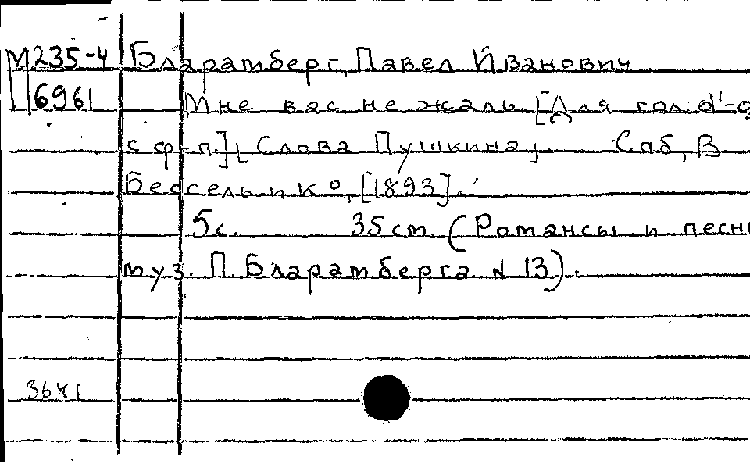 М235-4 Бларамберг, Павел Иванович
6961 Мне вас не жаль [Для гол.
с ф-п.] [Слова Пушкина]. Спб, В.
Бессель и К°, [1893].
5с. 35 см. (Романсы и песни
муз. П. Бларамберга N 13).